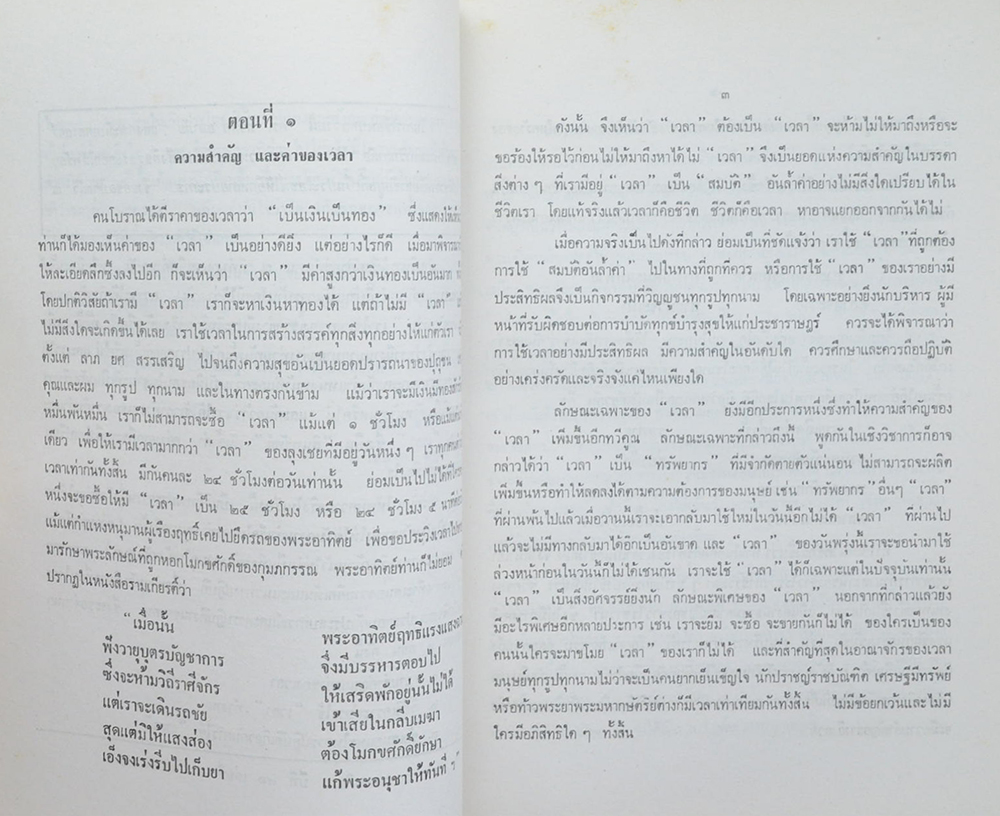 ตอนที่ ๑
ความสำคัญ และค่าของเวลา
คนโบราณได้ตีราคาของเวลาว่า “เป็นเงินเป็นทอง” ซึ่งแสดงให้เห็น
ท่านก็ได้มองเห็นค่าของ “เวลา” เป็นอย่างดียิ่ง แต่อย่างไรก็ดี เมื่อมาพิจารณา
ให้ละเอียดลึกซึ้งลงไปอีก ก็จะเห็นว่า “เวลา” มีค่าสูงกว่าเงินทองเป็นอันมาก
โดยปกติวิสัยถ้าเรามี “เวลา” เราก็จะหาเงินหาทองได้ แต่ถ้าไม่มี “เวลา”
ไม่มีสิ่งใดจะเกิดขึ้นได้เลย เราใช้เวลาในการสร้างสรรค์ทุกสิ่งทุกอย่างให้แก่ตัวเรา
ตั้งแต่ ลาภ ยศ สรรเสริญ ไปจนถึงความสุขอันเป็นยอดปรารถนาของปุถุชน
คุณและผม ทุกรูป ทุกนาม และในทางตรงกันข้าม แม้ว่าเราจะมีเงินมีทอง
หมื่นพันหมื่น เราก็ไม่สามารถจะซื้อ “เวลา” แม้แต่ ๑ ชั่วโมง หรือแม้แต่
เดียว เพื่อให้เรามีเวลามากกว่า “เวลา” ของลุงเชยที่มีอยู่วันหนึ่ง ๆ เราทุกคน
เวลาเท่ากันทั้งสิ้น มีกันคนละ ๒๔ ชั่วโมงต่อวันเท่านั้น ย่อมเป็นไปไม่ได้ที่ใคร
หนึ่งจะขอซื้อให้มี “เวลา” เป็น ๒๕ ชั่วโมง หรือ ๒๔ ชั่วโมง ๕ นาที
แม้แต่กำแหงหนุมานผู้เรืองฤทธิ์เคยไปยึดรถของพระอาทิตย์ เพื่อขอประวิงเวลาไป
มารักษาพระลักษณ์ที่ถูกหอกโมกขศักดิ์ของกุมภกรรณ พระอาทิตย์ท่านก็ไม่ยอม
ปรากฏในหนังสือรามเกียรติ์ว่า
“เมื่อนั้น พระอาทิตย์ฤทธิแรงแสง
ฟังวายุบุตรบัญชาการ จึ่งมีบรรหารตอบไป
ซึ่งจะห้ามวิถีราศีจักร ให้เสร็ดพักอยู่นั้นไม่ได้
แต่เราจะเดินรถชัย เข้าเสียในกลีบเมฆา
สุดแต่มิให้แสงส่อง ต้องโมกขศักดิ์ยักษา
เอ็งจงเร่งรีบไปเก็บยา แก้พระอนุชาให้ทันที ๆ”
๓
ดังนั้น จึงเห็นว่า “เวลา” ต้องเป็น “เวลา” จะห้ามไม่ให้มาถึงหรือจะ
ขอร้องให้รอไว้ก่อนไม่ให้มาถึงหาได้ไม่ “เวลา” จึงเป็นยอดแห่งความสำคัญในบรรดา
สิ่งต่าง ๆ ที่เรามีอยู่ “เวลา” เป็น “สมบัติ” อันล้ำค่าอย่างไม่มีสิ่งใดเปรียบได้ใน
ชีวิตเรา โดยแท้จริงแล้วเวลาก็คือชีวิต ชีวิตก็คือเวลา หาอาจแยกออกจากกันได้ไม่
เมื่อความจริงเป็นไปดังที่กล่าว ย่อมเป็นที่ชัดแจ้งว่า เราใช้ “เวลา”ที่ถูกต้อง
การใช้ “สมบัติอันล้ำค่า” ไปในทางที่ถูกที่ควร หรือการใช้ “เวลา” ของเราอย่างมี
ประสิทธิผลจึงเป็นกิจกรรมที่วิญญูชนทุกรูปทุกนาม โดยเฉพาะอย่างยิ่งนักบริหาร ผู้มี
หน้าที่รับผิดชอบต่อการบำบัดทุกข์บำรุงสุขให้แก่ประชาราษฎร์ ควรจะได้พิจารณาว่า
การใช้เวลาอย่างมีประสิทธิผล มีความสำคัญในอันดับใด ควรศึกษาและควรถือปฏิบัติ
อย่างเคร่งครัดและจริงจังแค่ไหนเพียงใด
ลักษณะเฉพาะของ “เวลา” ยังมีอีกประการหนึ่งซึ่งทำให้ความสำคัญของ
“เวลา” เพิ่มขึ้นอีกทวีคูณ ลักษณะเฉพาะที่กล่าวถึงนี้ พูดกันในเชิงวิชาการก็อาจ
กล่าวได้ว่า “เวลา” เป็น “ทรัพยากร” ที่มีจำกัดตายตัวแน่นอน ไม่สามารถจะผลิต
เพิ่มขึ้นหรือทำให้ลดลงได้ตามความต้องการของมนุษย์ เช่น “ทรัพยากร”อื่นๆ “เวลา”
ที่ผ่านพ้นไปแล้วเมื่อวานนี้เราจะเอากลับมาใช้ใหม่ในวันนี้อีกไม่ได้ “เวลา” ที่ผ่านไป
แล้วจะไม่มีทางกลับมาได้อีกเป็นอันขาด และ “เวลา” ของวันพรุ่งนี้เราจะขอนำมาใช้
ล่วงหน้าก่อนในวันนี้ก็ไม่ได้เช่นกัน เราจะใช้ “เวลา” ได้ก็เฉพาะแต่ในปัจจุบันเท่านั้น
“เวลา” เป็นสิ่งอัศจรรย์ยิ่งนัก ลักษณะพิเศษของ “เวลา” นอกจากที่กล่าวแล้วยัง
มีอะไรพิเศษอีกหลายประการ เช่น เราจะยืม จะซื้อ จะขายกันก็ไม่ได้ ของใครเป็นของ
คนนั้นใครจะมาขโมย “เวลา” ของเราก็ไม่ได้ และที่สำคัญที่สุดในอาณาจักรของเวลา
มนุษย์ทุกรูปทุกนามไม่ว่าจะเป็นคนยากเย็นเข็ญใจ นักปราชญ์ราชบัณฑิต เศรษฐีมีทรัพย์
หรือท้าวพระยาพระมหากษัตริย์ต่างก็มีเวลาเท่าเทียมกันทั้งสิ้น ไม่มีข้อยกเว้นและไม่มี
ใครมีอภิสิทธิใด ๆ ทั้งสิ้น